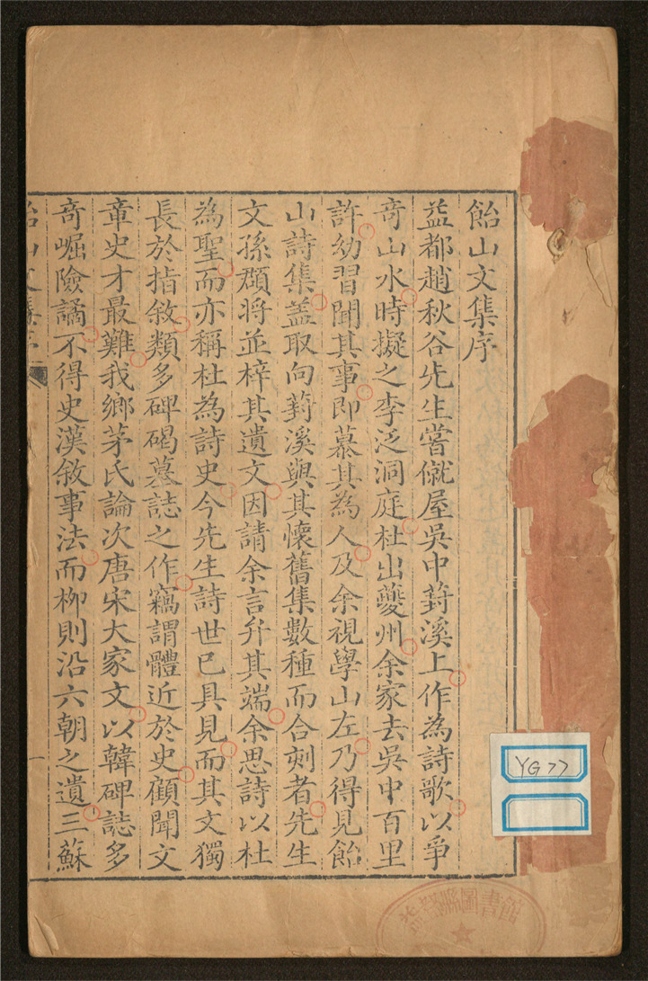 飴山文集序
益都趙秋谷先生嘗僦屋吳中葑溪上作為詩歌以爭
奇山水時擬之李泛洞庭杜出夔州余家去吳中百里
許幼習聞其事即慕其為人及余視學山左乃得見飴
山詩集蓋取向葑溪與其懷舊集數種而合刻者先生
文孫頫將並梓其遺文因請余言弁其端余思詩以杜
為聖而亦稱杜為詩史今先生詩世已具見而其文獨
長於指敘類多碑碣墓誌之作竊謂體近於史顧聞文
章史才最難我鄉茅氏論次唐宋大家文以韓碑誌多
奇崛險譎不得史漢敘事法而栁則沿六朝之遺三蘇
飴山文集序
一
YG77
圖書館